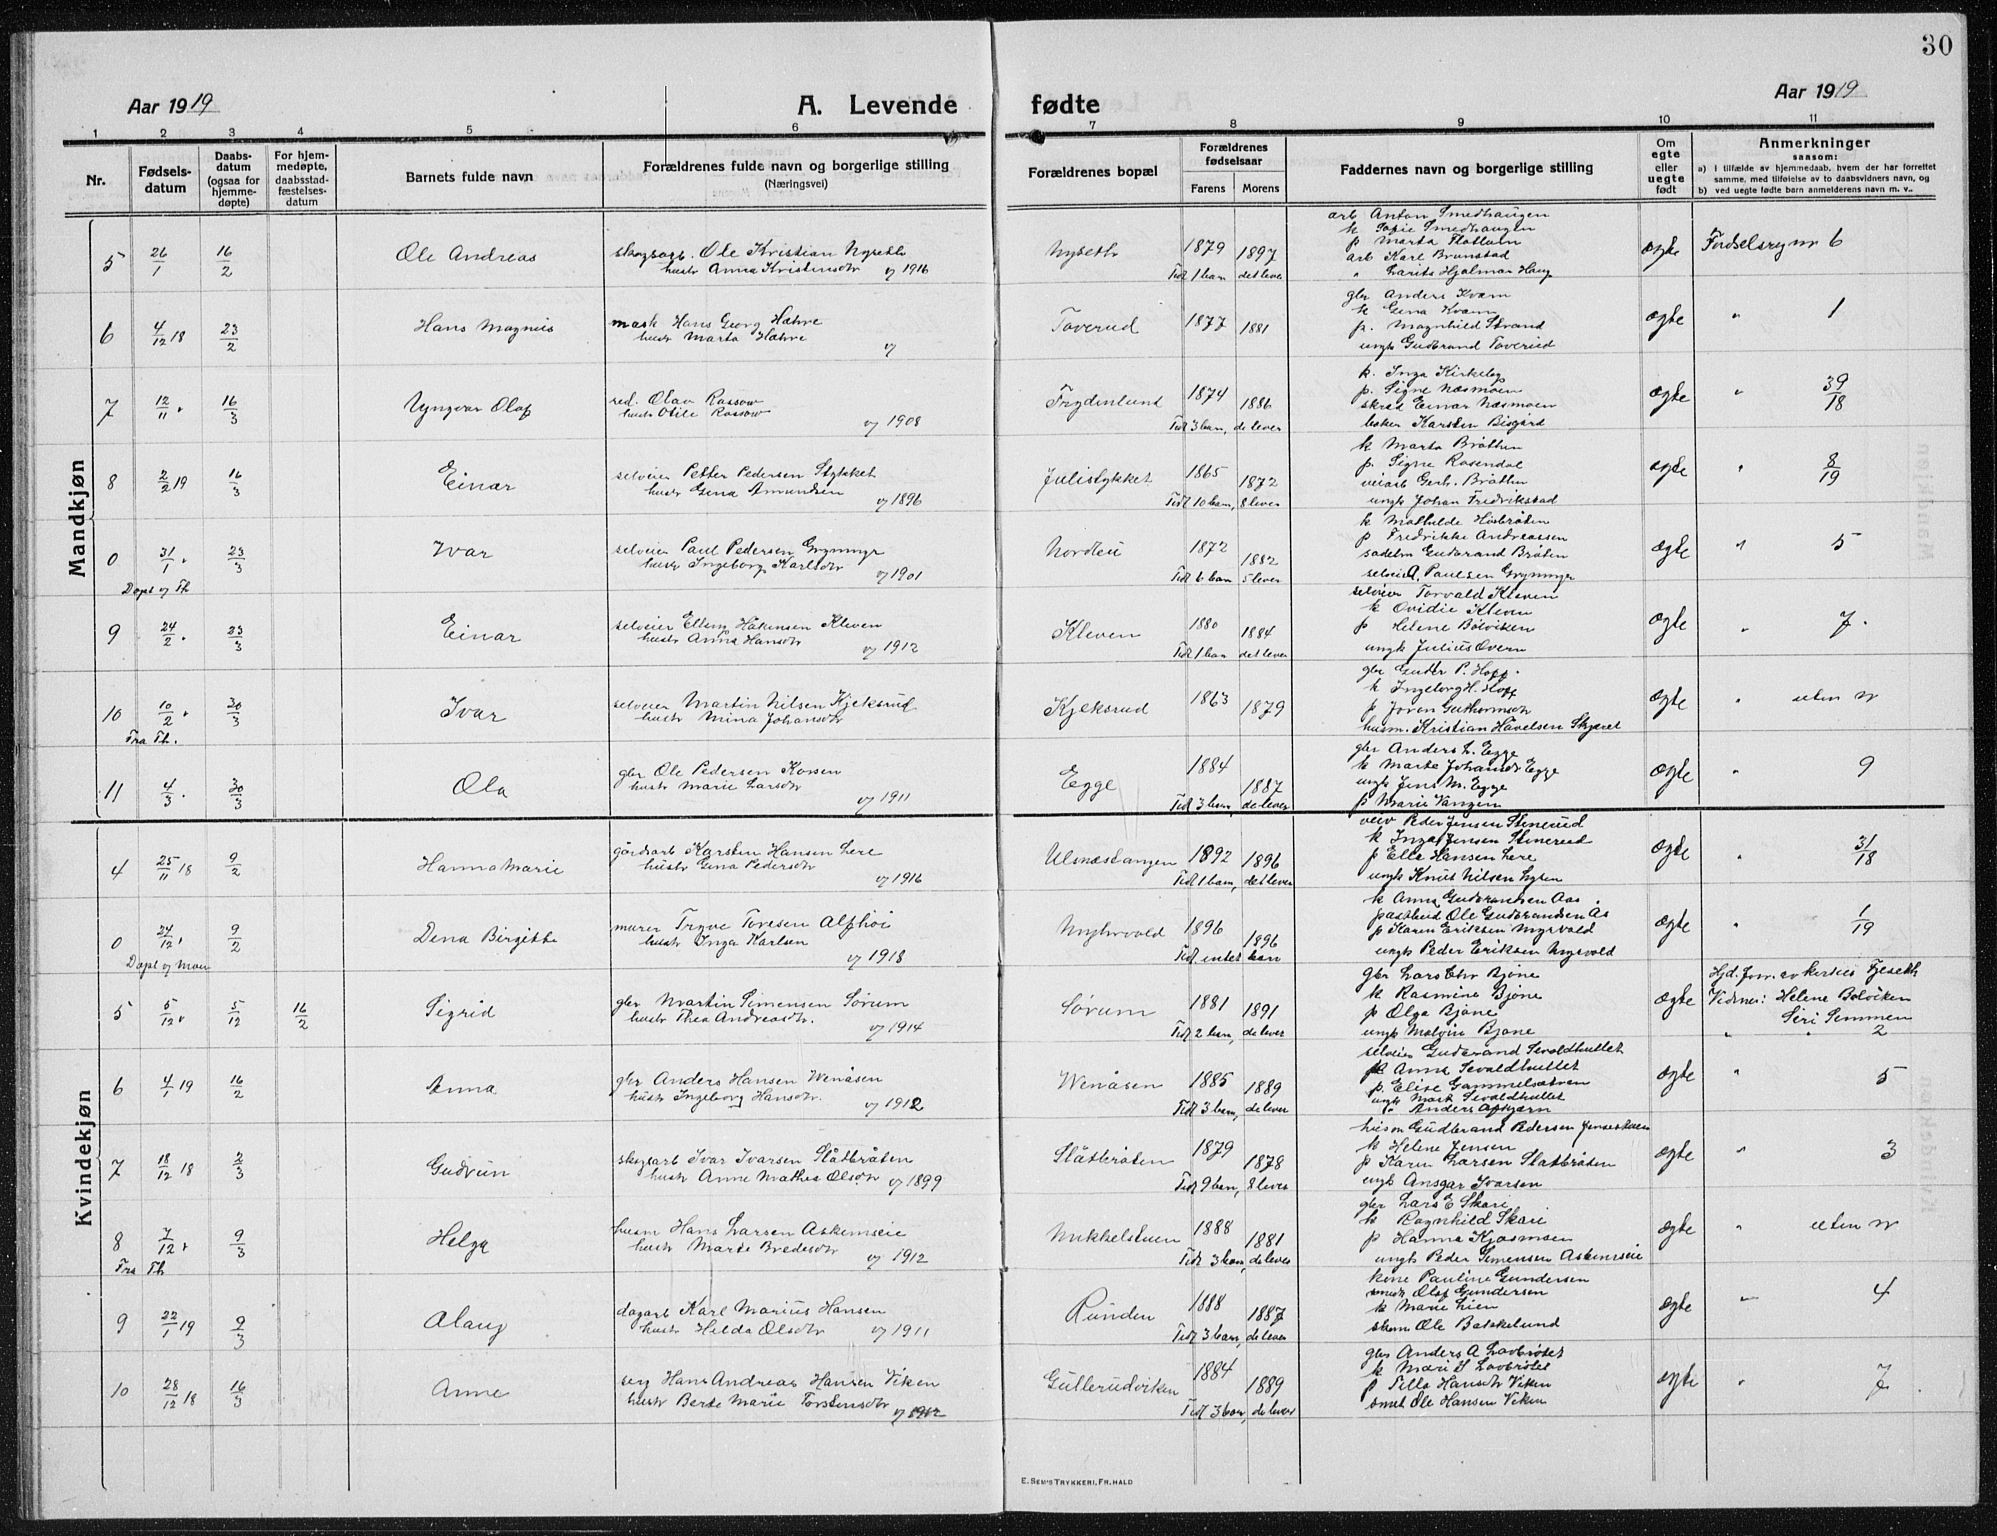 30
Aar 1919
A. Levende fødte
Aar 1919
1 2 3 4 5 6 7 8 9 10 11
Nr.
Fødsels-
datum
Daabs-
datum
(ogsaa for
hjemme-
døpte)
For hjem-
medøpte,
daabsstad-
fæstelses-
datum
Barnets fulde navn
Forældrenes fulde navn og borgerlige stilling
(Næringsvei)
Forældrenes bopæl
Forældrenes
fødselsaar
Farens Morens
Faddernes navn og borgerlige stilling
Om
egte
eller
uegte
født
Anmerkninger
saasom:
a) I tilfælde av hjemmedaab, hvem der har forrettet
samme, med tilføielse av to daabsvidners navn, og
b) ved uegte fødte barn anmelderens navn m. v..
Mandkjøn
5 26/1 16/2 Ole Andreas
skogsarb. Ole Kristian Nyseth
hustr Anna Kristinsdtr g 1916
Nyseth 1879 1897
Tidl 1 barn det lever
arb Anton Smedhaugen
k Sofie Smedhaugen
p Marta Flattum
arb Karl Brunstad
" Laurits Hjalmar Haug
ægte Fødselsreg nr 6
6 4/12 18 23/2 Hans Magnus
mask Hans Georg Hæhre
hustr Marta Hæhre g
Toverud 1877 1881
gbr Anders Kvam
k Gena Kvam
p. Magnhild Strand
ungk Gudbrand Toverud
ægte " 1
7 12/11 " 16/3 Yngvar Olaf
red. Olav Rassow
hustr Otile Rassow g 1908
Frydenlund 1874 1886
Tidl 3 barn, de lever
k. Inga Kirkeby
p. Signe Næsmoen
skred Einar Næsmoen
baker Karsten Bisgård
ægte " 39/18
8 2/2 19 16/3 Einar
selveier Petter Pedersen Stykket
hustr Gena Amundsen g 1896
Julistykket 1865 1872
Tidl 10 barn, 8 lever
k Marta Bråthen
p. Signe Rosendal
veiarb Gerh. Bråthen
ungk Johan Fredrikstad
ægte " 8/19
0 31/1 " 23/3 Ivar
Døpt og Th
selveier Paul Pedersen Gryningr
hustr Ingeborg Karlsdtr g 1901
Nordlii 1872 1882
Tidl 6 barn 5 lever
k Mathilde Høibråten
p Fredrikke Andreassen
sadelm Gudbrand Bråten
selvei A. Paulsen Gryningr
ægte " 5
9 24/2 " 23/3 Einar
selveier Elling Håkensen Kleven
hustr Anna Hansdtr g 1912
Kleven 1880 1884
Tidl 1 barn det lever
selveier Torvald Kleven
k Ovidie Kleven
p Helene Bølviken
ungk Julius Overn
ægte " 7.
10 10/2 " 30/3 Ivar
Fra Th.
selveier Martin Nilsen Kjeksrud
hustr Mina Johansdtr
Kjeksrud 1863 1879
gbr Guder P. Hoff.
k Ingeborg H. Hoff
p Joran Guthormsdtr
husm. Kristian Håvelsen Skjæret
ægte " uten nr
11 4/3 " 30/3 Ola
gbr Ole Pedersen Korsen
hustr Marie Larsdtr g 1911
Egge 1884 1887
Tidl 3 barn de lever
gbr Anders L. Egge
k Marte Johansdtr Egge
ungk Jens M. Egge
p Marie Vangen
ægte " 9
Kvindekjøn
4 25/11 18 9/2 Hanna Marie
gårdsarb Karsten Hansen Lere
hustr Gina Pedersdtr g 1916
Ulsnæstangen 1892 1896
Tidl 1 barn, det lever
veiv Peder Jensen Stenerud
k Inga Jensen Stenerud
p Elle Hansen Lere
ungk Knut Nilsen Lysen
ægte " 31/18
0 24/12 " 9/2 Dena Birgitte
Døpt og Moen
murer Trygve Toresen Alfhøi
hustr Inga Karlsen g 1918
Myhrvold 1896 1896
Tidl. intet barn
k Anna Gudbrandsen Aas
pastbud Ole Gudbrandsen Ås
p Karen Eriksen Myrvold
ungk Peder Eriksen Myrvold
ægte " 1/19
5 5/12 " 5/12 16/2 Sigrid
gbr Martin Simensen Sørum
hustr Thea Andreasdtr. g 1914
Sørum 1881 1891
Tidl 2 barn, de lever
gbr Lars Ehr Bjøne
k Rasmine Bjøne
p Olga Bjøne
ungk Malvin Bjøne
ægte Hjd. forr. av kersius Fjeseth
Vidner: Helene Bolviken
Siri Semmen
" 2
6 4/1 19 16/2 Anna
gbr Anders Hansen Wenåsen
hustr Ingeborg Hansdtr. g 1912
Wenåsen 1885 1889
Tidl 3 barn, de lever
selveier Gudbrand Sevaldhullet
k Anna Sevaldhullet
p. Elise Gammelsætren
ungk Mart Sevaldhullet
" Anders Afkjærn
ægte " 5
7 18/12 18 2/3 Gudrun
skogsarb Ivar Ivarsen Slåtbråten
hustr Anne Mathea Olsdtr g 1899
Slåtbråten 1879 1878
Tidl 9 barn, 8 lever
husm Gudbrand Pedersen Jensestuen
k Helene Jensen
p Karen Larsen Slatbråten
ungk Ansgar Ivarsen
ægte " 3
8 7/12 " 9/3 Helga
Fra Th
husm Hans Larsen Askemseie
hustr Marte Bredesdtr g 1912
Mikkelstuen 1888 1881
Tidl 3 barn, de lever
gbr Lars E Skari
k Ragnhild Skari
p Hanna Kjosmsen
ungk Peder Simensen Askemseie
ægte " uten nr
9 22/1 19 9/3 Alaug
dagarb Karl Marius Hansen
hustr Hilda Olsdtr g 1911
Runden 1888 1887
Tidl 3 barn, de lever
kone Pauline Gundersen
smed Olaf Gundersen
k Marie Lien
skom Ole Bakkelund
ægte " 4
10 28/12 18 16/3 Anne
seg Hans Andreas Hansen Viken
hustr Berte Marie Torstensdtr g 1912
Gullerudviken 1884 1889
Tidl 3 barn, de lever
gbr Anders A Lovbrøtet
k Mari S Lovbrøtet
p Tilla Hansdtr Viken
smed Ole Hansen Viken
ægte " 7
E. Sem's Trykkeri, Fr.hald